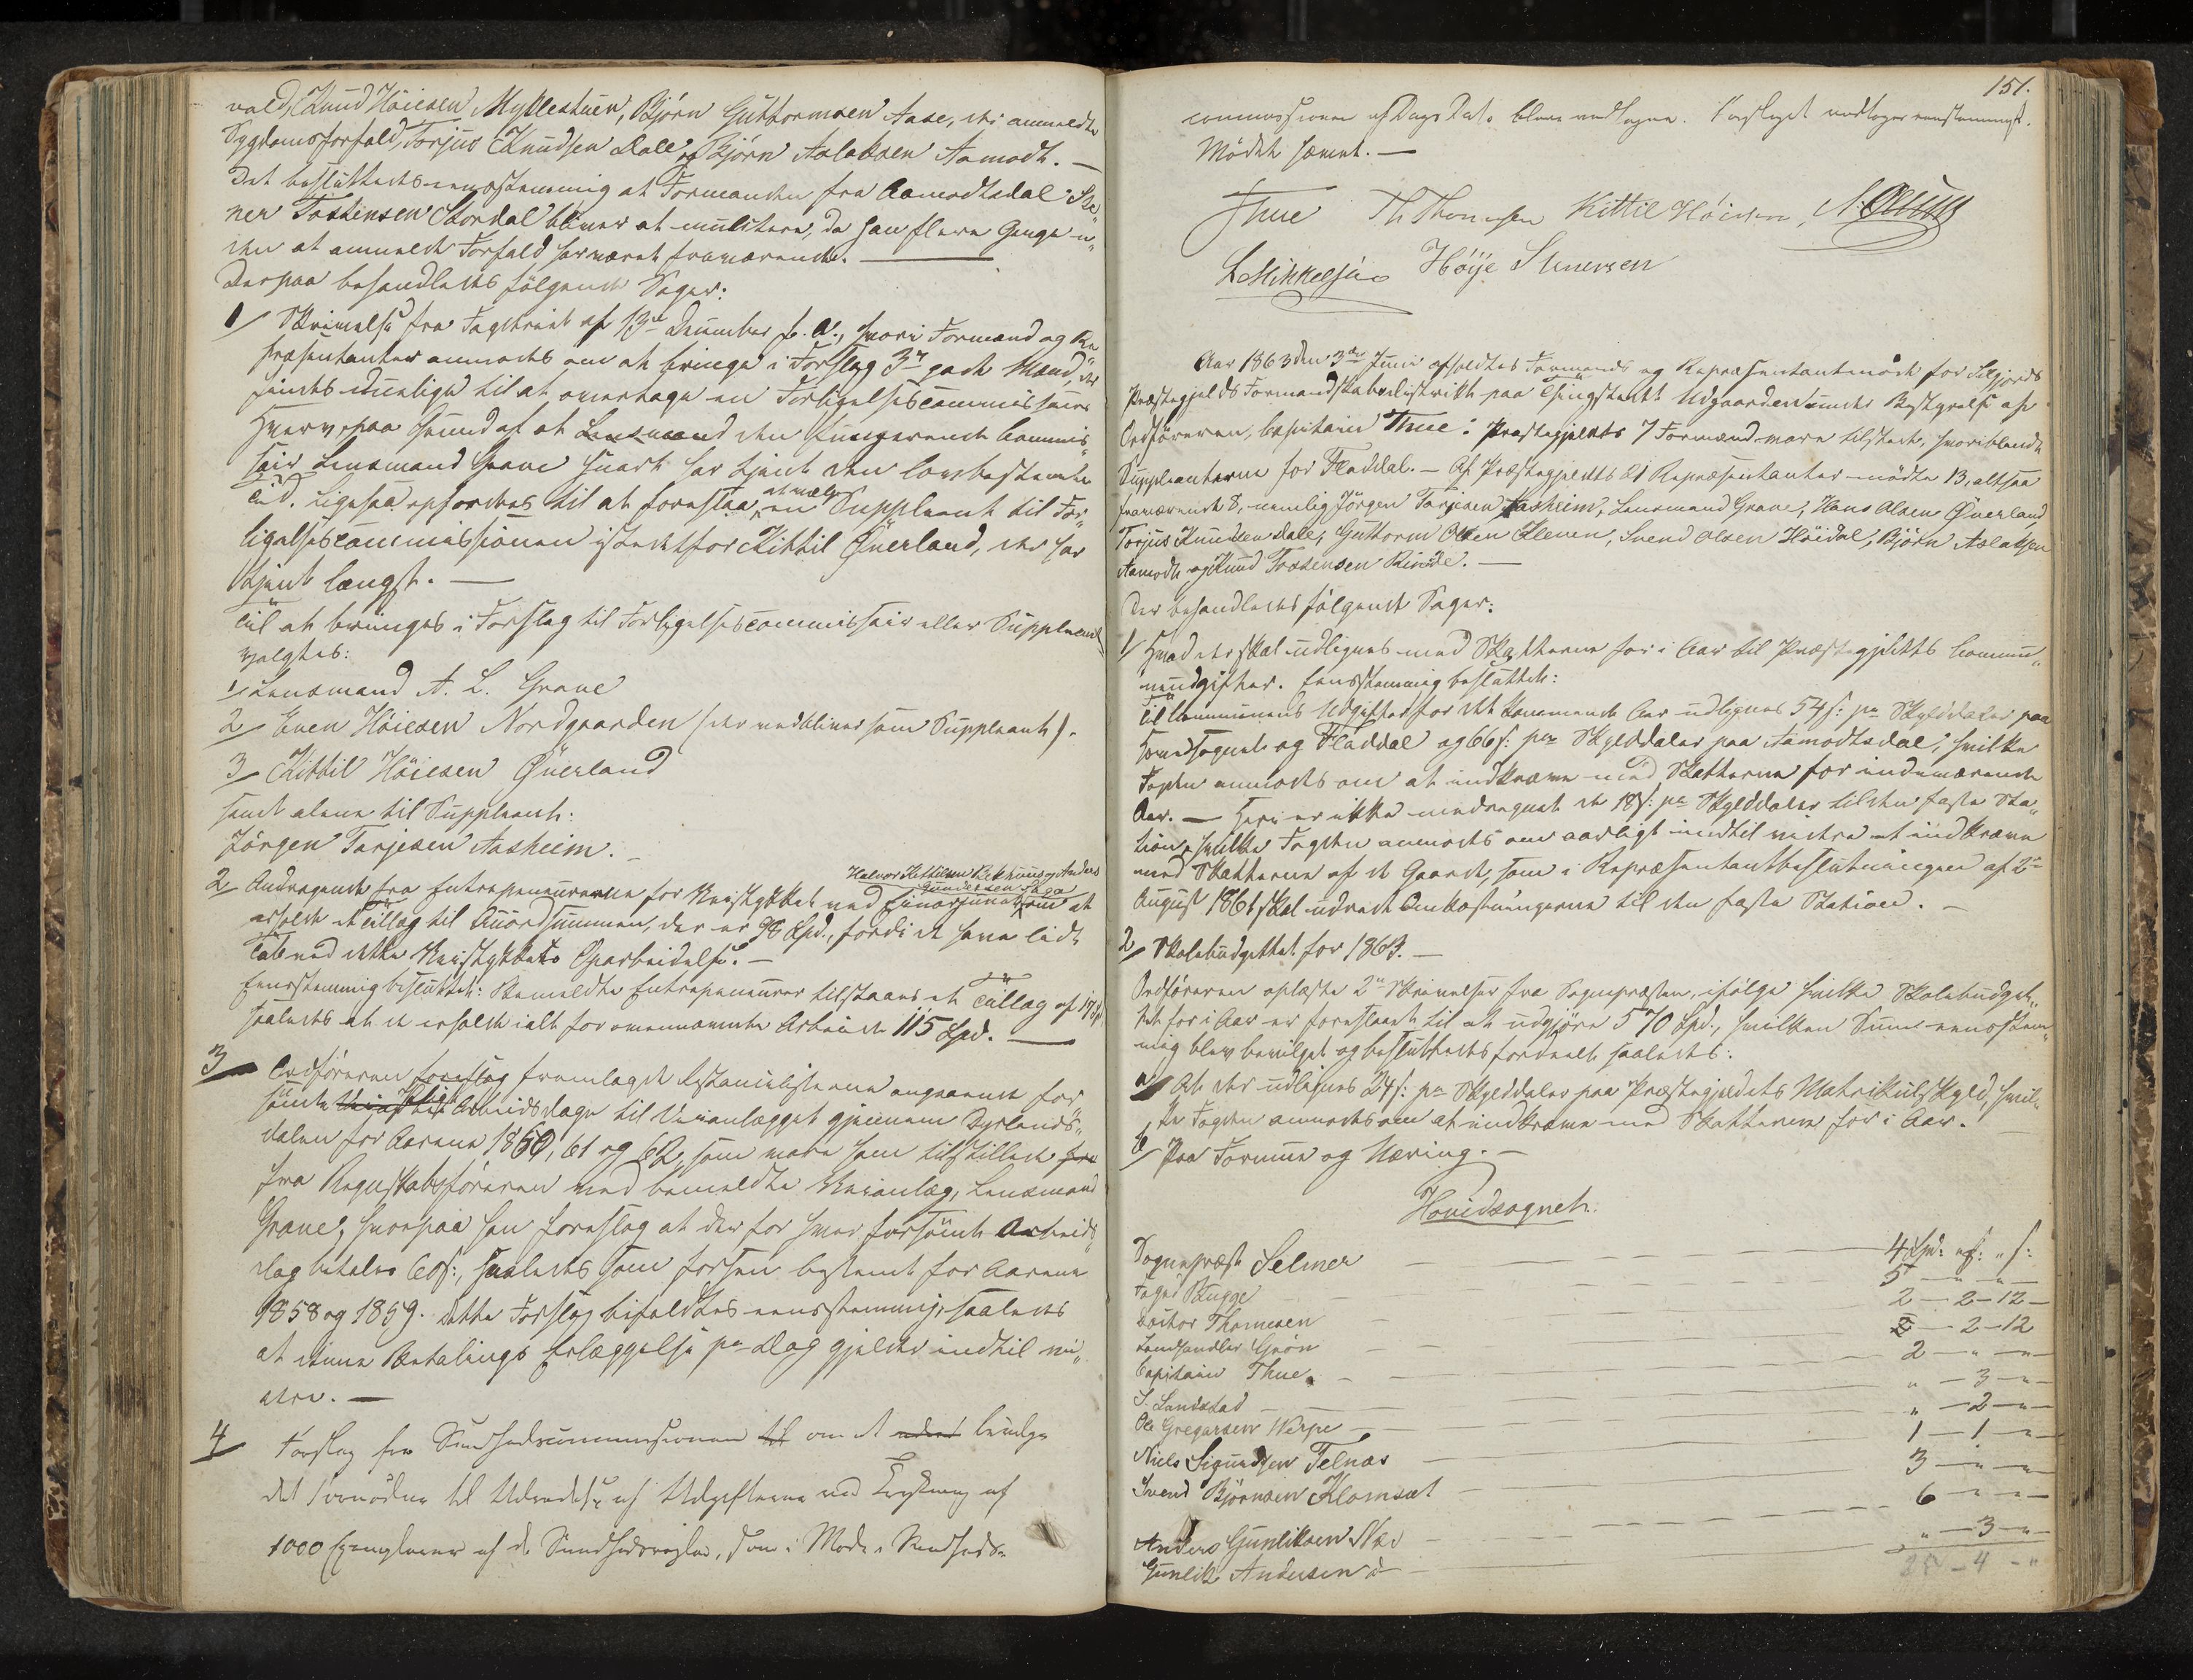 vold, Knud Höiesen Myklestuen, Björn Guttormsen Aase, der anmeldte
Sygdomsforfald, Torjus Knudsen Dale og Björn Aslaksen Aamodt. —
Det besluttedes eenstemmig at Formanden fra Aamodtsdal Ste„
ner Tostensen Stordal bliver at mulktere, da han flere Gange u„
den at anmelde Forfald har været fraværende. —
Derpaa behandledes fölgende Sager:
1/ Skrivelse fra Fogderiet af 13de December f. A., hvori Formænd og Re„
præsentanter anmodes om at bringe i Forslag 3de gode Mænd, der
findes duelige til at overtage en Forligelsescommissairs
Hverv, paa Grund af at Lensmand den fungerende Commis„
sair Lensmand Grave snart har tjent den lovbestemte
Tid. Ligesaa opfordres til at foreslaa, at vælge en Suppleant til For„
ligelsescommissionen istedetfor Kittil Överland, der har
tjent længst. —
Til at bringes i Forslag til Forligelsescommissair eller Suppleant
valgtes:
1/ Lensmand A. L. Grave
2/ Even Höiesen Nordgaarden (der vedbliver som Suppleant).
3/ Kittil Höiesen Överland
samt alene til Suppleant:
Jörgen Tarjesen Aasheim. —
Halvor Kittilsen Rekhuus og Anders
Gundersen Haga
2/ Andragende fra Entrepeneurerne for Veistykket ved om at
erholde et Tillæg til Accordsummen, der er 98 Spd., fordi de have lidt
Tab ved dette Veistykkets Oparbeidelse. —
Eensstemmig besluttet: Bemeldte Entrepeneurer tilstaaes et Tillæg af 17 Spd
saaledes at de erholde ialt for ovennævnte Arbeide 115 Spd. —
3 Ordföreren foreslog fremlagde Restancelisterne angaaende for„
sömte Pligt Arbeidsdage til Veianlægget gjennem Dyrlands„
dalen for Aarene 1860, 61 og 62, som vare ham tilstillede fra
fra Regnskabsföreren ved bemeldte Veianlæg, Lensmand
Grave, hvorpaa han foreslog at der for hver forsömt Arbeids„
dag betales 60 s:, saaledes som forhen bestemt for Aarene
1858 og 1859. Dette Forslag bifaldtes eensstemmig, saaledes
at denne Betalings Erlæggelse pr Dag gjelder indtil vi„
dere. —
4 Forslag fra Sundhedscommissionen til om at bevilge
det Fornödne til Udredelse af Udgifterne ved Trykning af
1000 Exemplarer af de Sundhedsregler, som i Möde i Sundheds„
151.
commissionen af Dags Dato bleve vedtagne. Forslaget vedtoges eenstemmigt.
Mödet hævet. —
Thue Th Thomesen Kittil Höiesen,
L Mikkelsen Höije Stenersen
Aar 1863 den 3die Juni afholdtes Formands og Repræsentantmöde for Seljords
Præstegjelds Formandskabsdistrikt paa Thingstedet Udgaarden under Bestyrelse af
Ordföreren, Capitain Thue. Præstegjeldets 7 Formænd vare tilstede, hvoriblandt
Suppleanterne for Fladdal. — Af Præstegjeldets 21 Repræsentanter mödte 13, altsaa
fraværende 8, nemlig Jörgen Tarjesen Aasheim, Lensmand Grave, Hans Olsen Överland
Torjus Knudsen Dale, Guttorm Olsen Kleven, Svend Olsen Höidal, Björn Aslaksen
Aamodt og Knud Tostensen Rinde. —
Der behandledes fölgende Sager:
1/ Hvad der skal udlignes med Skatterne for i Aar til Præstegjeldets Commu„
neudgifter. Eensstemmig besluttet:
Til Communens Udgifter for det kommende Aar udlignes 54 s: pr Skylddaler paa
Hovedsognet og Fladdal og 66 s: pr Skylddaler paa Aamodtsdal, hvilke
Fogden anmodes om at indkræve med Skatterne for indeværende
Aar. — Heri er ikke medregnet de 18 s: pr Skylddaler til den faste Sta„
tion, hvilke Fogden anmodes om aarligt indtil videre at indkræve
med Skatterne af de Gaarde, som i Repræsentantbeslutningen af 2den
August 1861 skal udrede Omkostningerne til den faste Station. —
2/ Skolebudgettet for 1863. —
Ordföreren oplæste 2de Skrivelser fra Sognepræsten, ifölge hvilke Skolebudget„
tet for i Aar er foreslaaet til at udgjöre 570 Spd., hvilken Sum eensstem„
mig blev bevilget og besluttedes fordeelt saaledes:
a/ At der udlignes 24 s: pr Skylddaler paa Præstegjeldets Matrikulskyld, hvil„
ke Fogden anmodes om at indkræve med Skatterne for i Aar.
b/ Paa Formue og Næring. —
Hovedsognet.
Sognepræst Selmer — 4 Spd: „ : „ s:
Foged Bugge — 5 — „ — „ —
Doctor Thomesen — 2 — 2 — 12 —
Landhandler Grön — 2 — 2 — 12
Capitain Thue. — 2 — „ — „ —
S. Landstad — „ — 3 — „ —
Ole Gregarsen Verpe — „ — 2 — „ —
Niels Sigurdsen Felnæs — 1 — 1 — „ —
Svend Björnsen Klomset — 3 — „ — „
Anders Gunliksen Næs — 6 — „ — „ —
Gunlik Andersen d — „ — 3 — „ —
25 — 4 — „